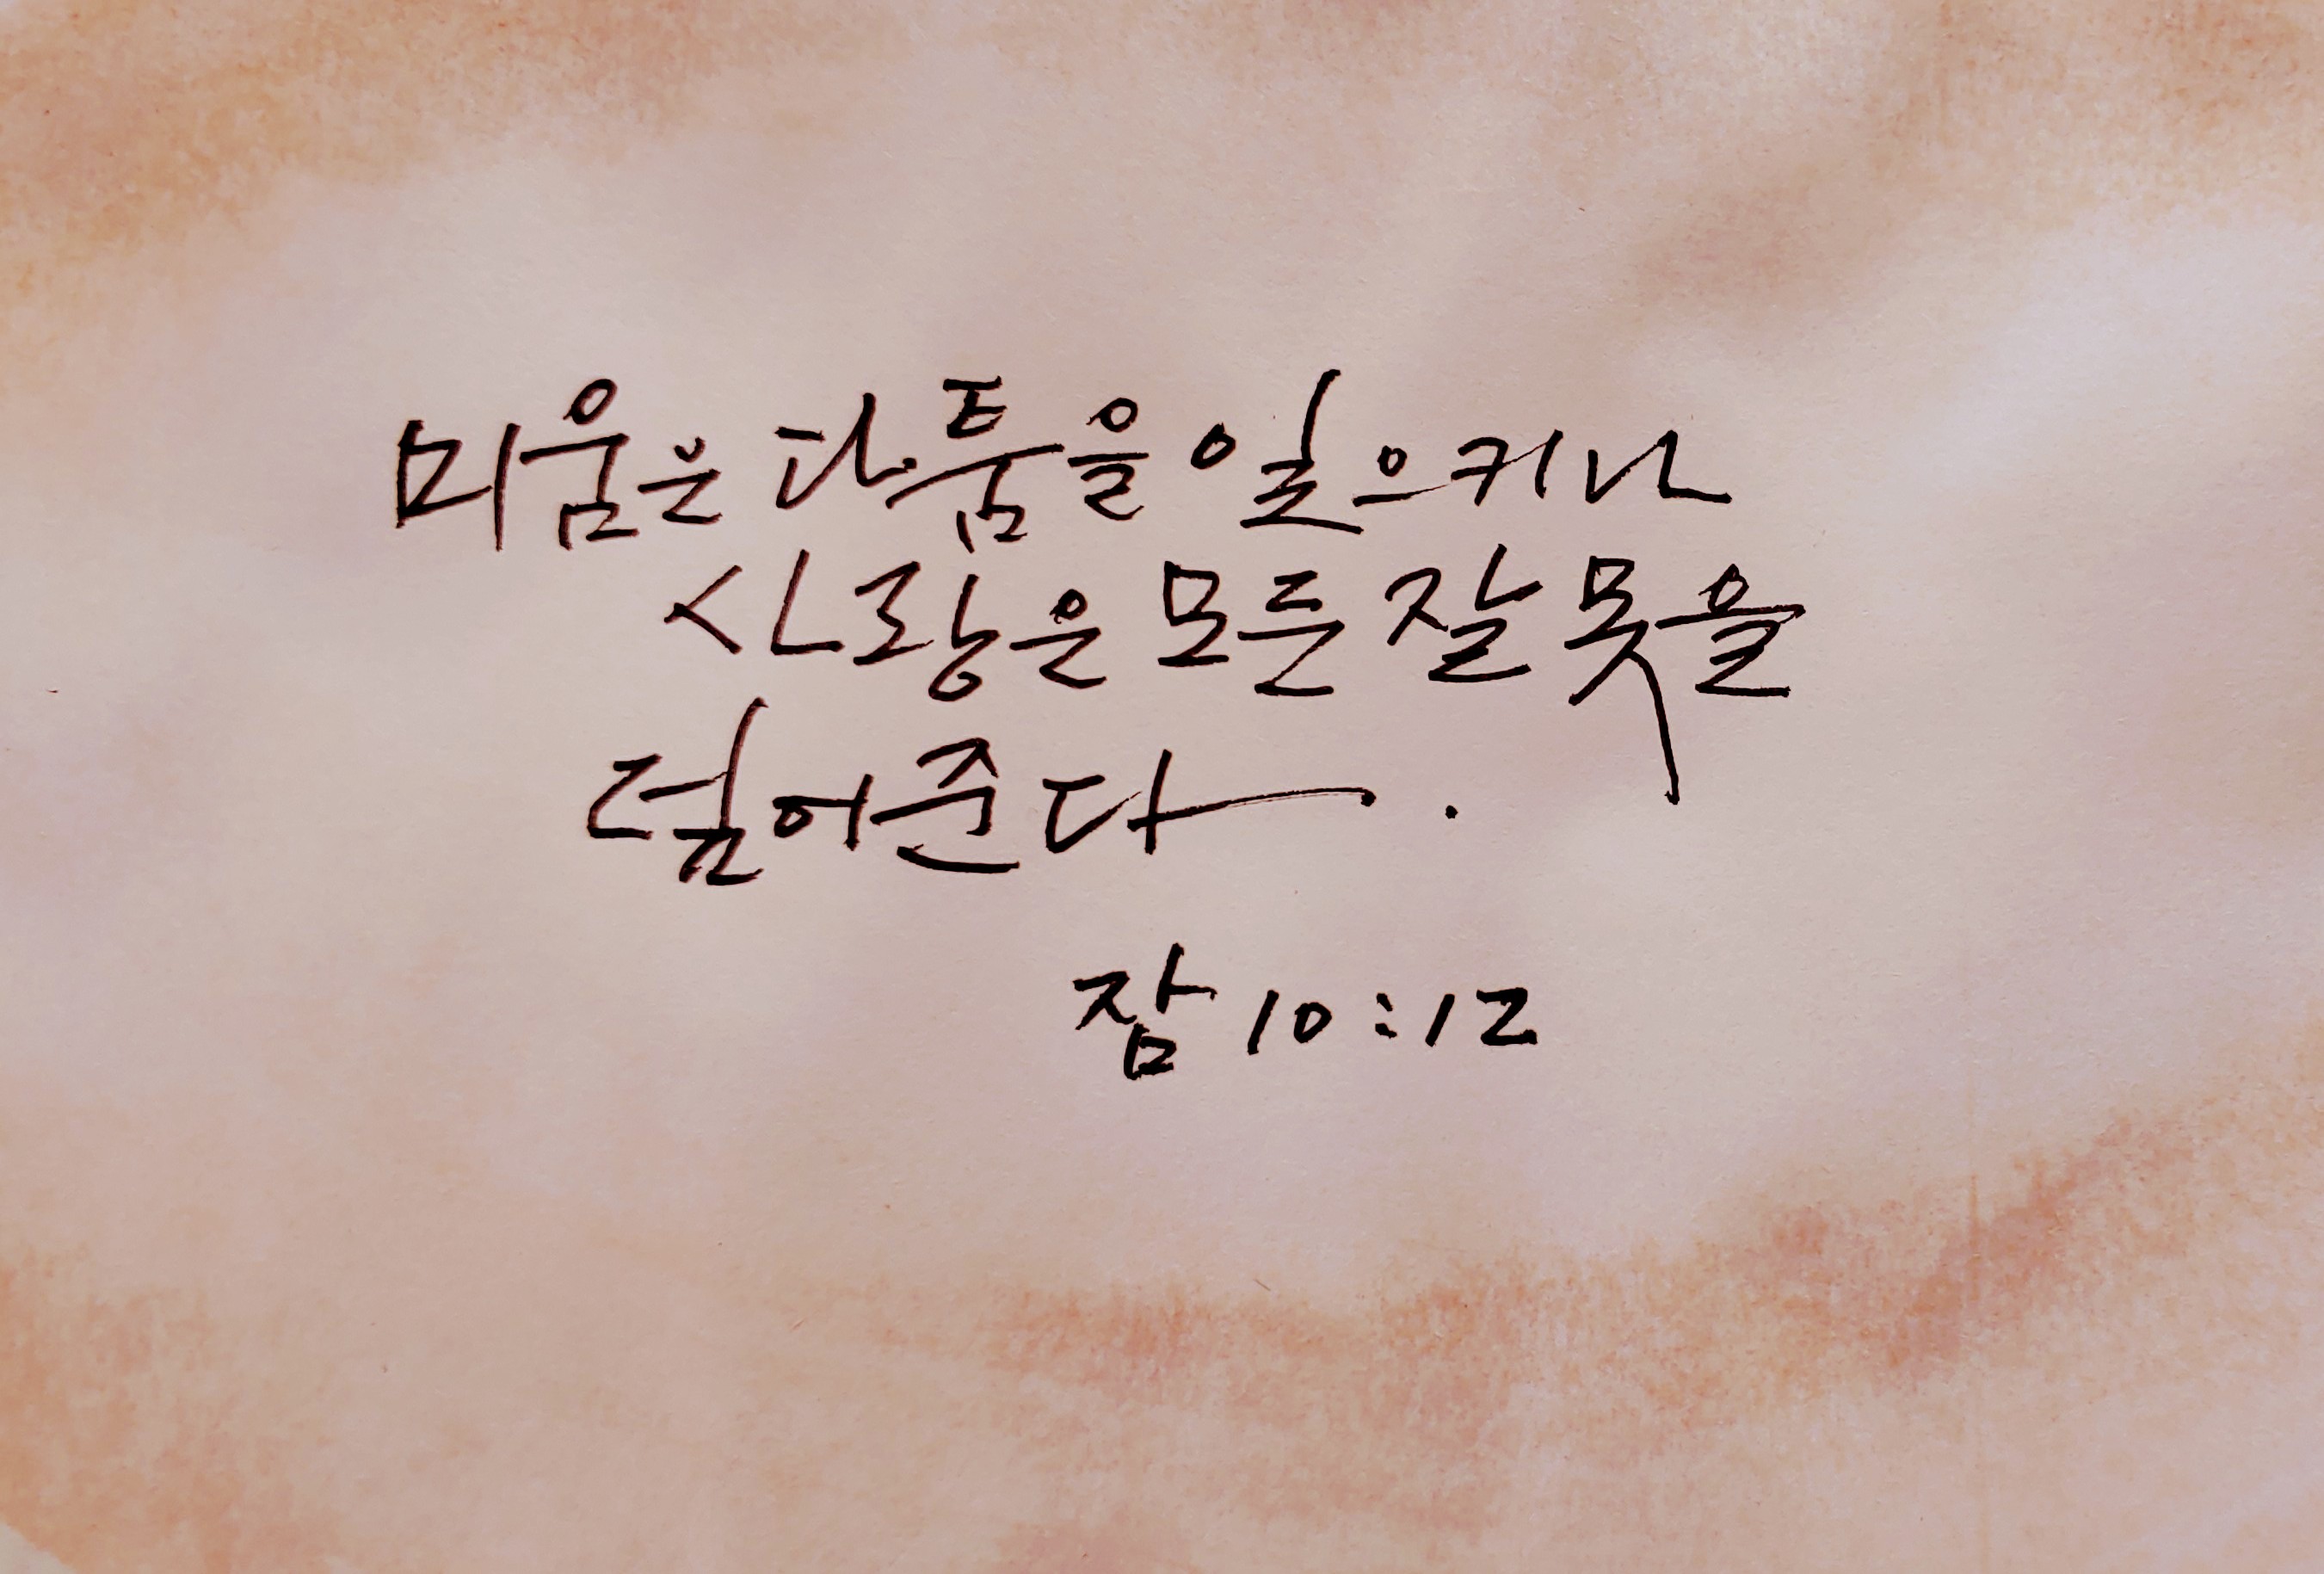 미움은 다툼을 일으키나
사랑은 모든 잘못을
덮어준다.
잠 10:12